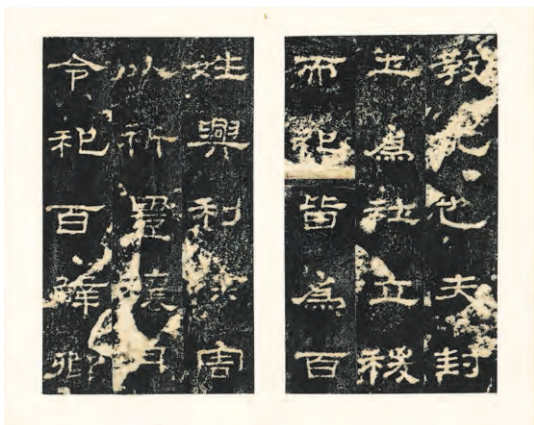 教化也夫封
土爲社立稷
而祀皆爲百
姓興利除害
以祈豐穰月
令祀百辟卿